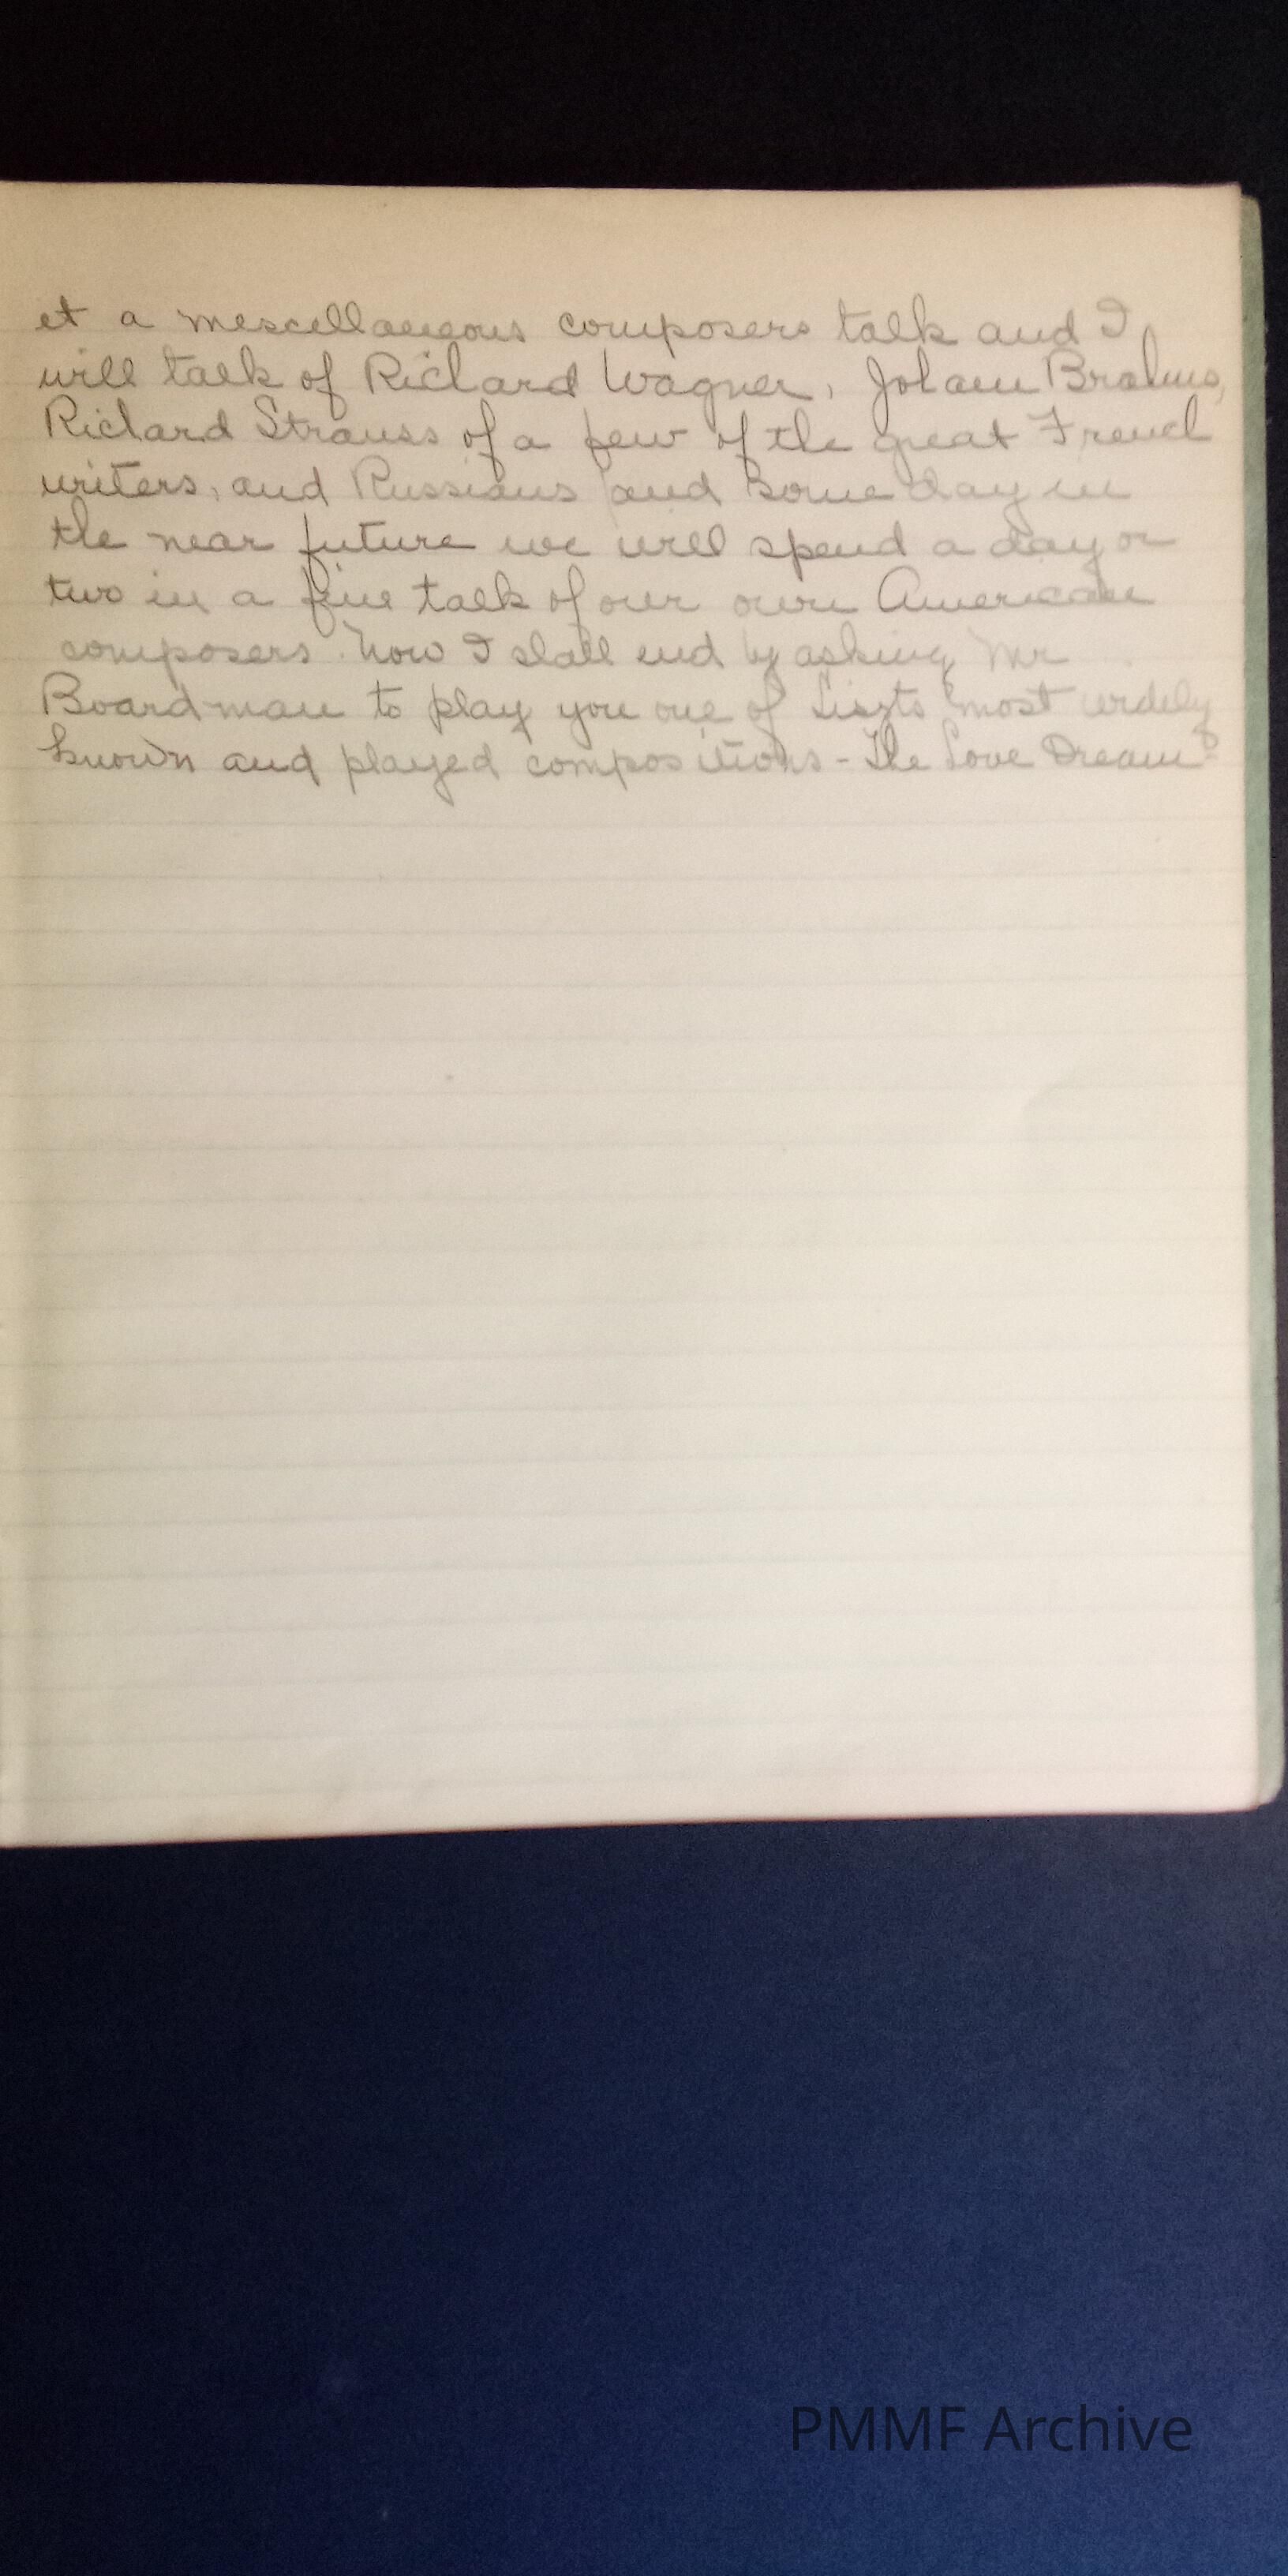 it a mescellaneous composers talk and I
will talk of Richard Wagner, Johann Brahms,
Richard Strauss of a few of the great French
writers, and Russians and some day in
the near future we will spend a day or
two in a fine talk of our own American
composers. Now I shall end by asking Mr
Boardman to play you one of Liszts most widely
known and played compositions - The Love Dream
PMMF Archive